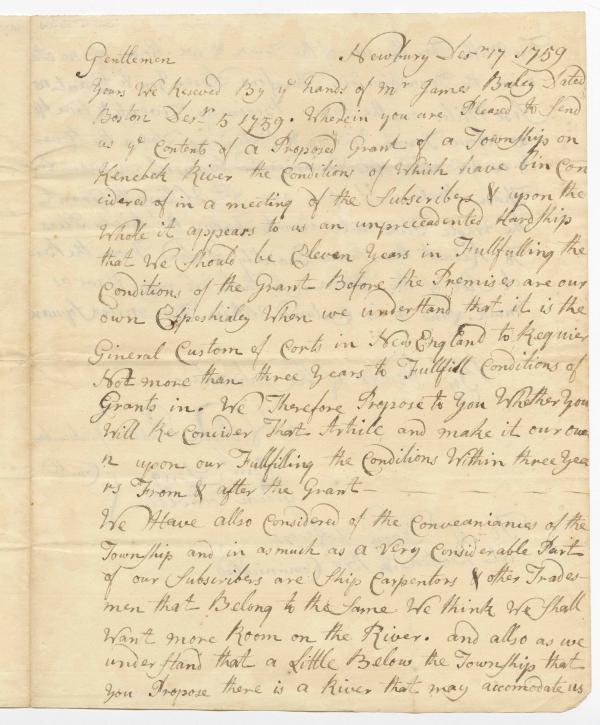 Gentlemen Newbury Desr 17 1759
Yours We Reseved By ye hands of Mr James Baley Dated
Boston Desr 5 1759. Wherein you are Pleased to Send
us ye Contents of a Proposed Grant of a Township on
Kenebek River the Conditions of Which have bin Con
cidered of in a meeting of the Subscribers & upon the
Whole it appears to us an unpreceadented Hardship
that We Should be Eleven Years in Fullfulling the
Conditions of the Grant Before the Premises are our
own Espeshialey When we understand that it is the
Gineral Custom of Corts in New England to Requier
Not more than three Years to Fullfill Conditions of
Grants in. We Therefore Propose to You Whether You
Will Re Concider That Article and make it our ow
n upon our Fullfilling the Conditions Within three Yea
rs From & after the Grant—
We Have allso Considered of the Conveaniances of the
Township and in asmuch as a Very Considerable Part
of our Subscribers are Ship Carpentors & other Trades
men that Belong to the Same We think We Shall
Want more Room on the River. and allso as we
understand that a Little Below the Township that
You Propose there is a River that may accomodate us